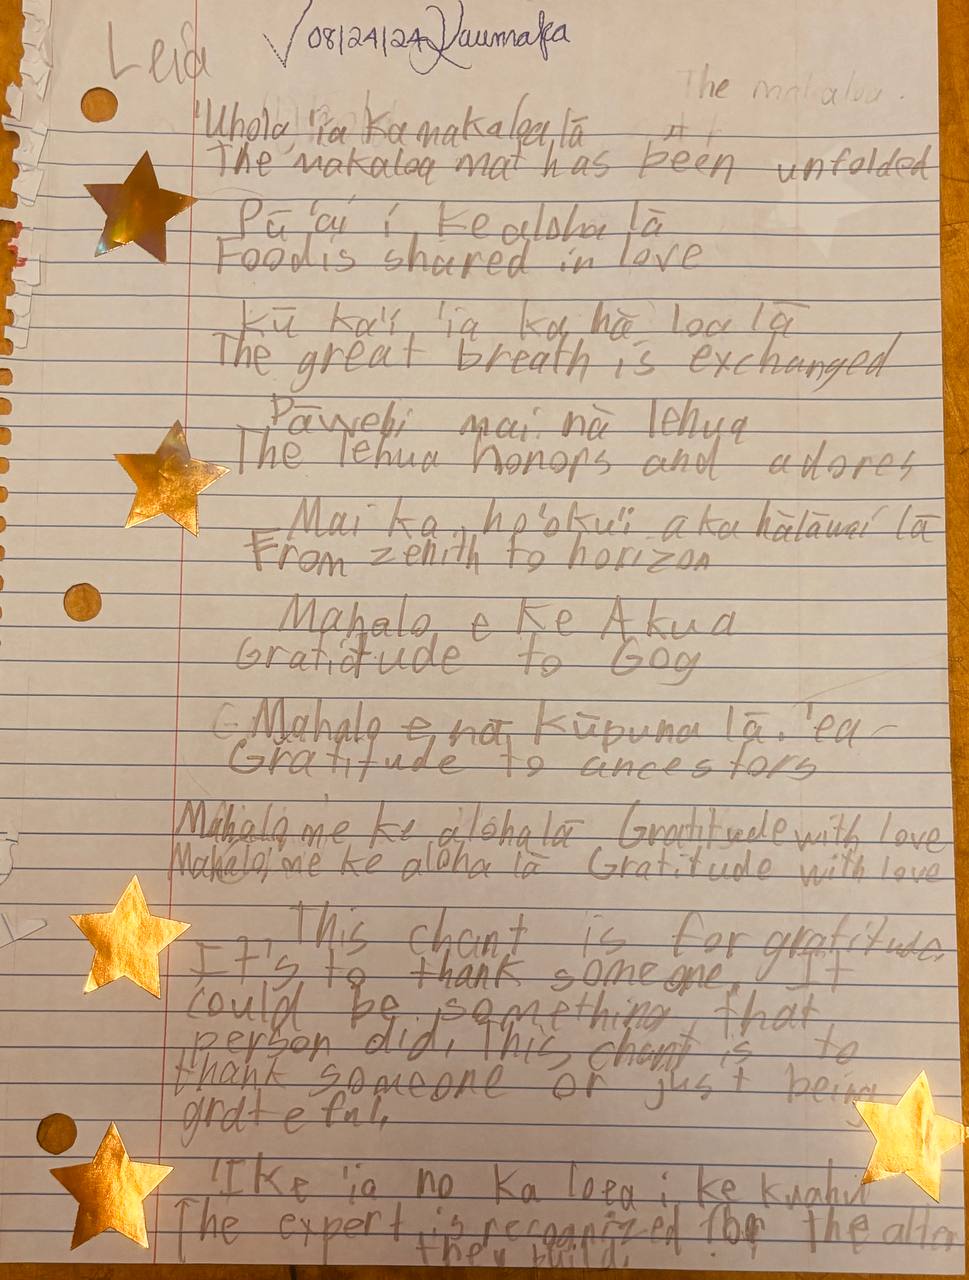 Leia √08/24/24 Kaumaka
The makaloa.
'Uhola 'ia ka makaloa lā
The makaloa mat has been unfolded
Pā 'ai i ke aloha lā
Food is shared in love
Kū ka'i 'ia ka hā loa lā
The great breath is exchanged
Pāwehi mai nā lehua
The lehua honors and adores
Mai ka ho'oku'i a ka hālāwai lā
From zenith to horizon
Mahalo e Ke Akua
Gratitude to Gog
Mahalo e nā Kūpuna lā. 'ea -
Gratitude to ancestors
Mahalo me ke aloha lā Gratitude with love
Mahalo me ke aloha lā Gratitude with love
This chant is for gratitude.
It's to thank someone. It
could be something that
person did. This chant is to
thank someone or just being
grateful.
'Ike 'ia no ka loea i ke kuahu
The expert is recognized for the alter
they build.